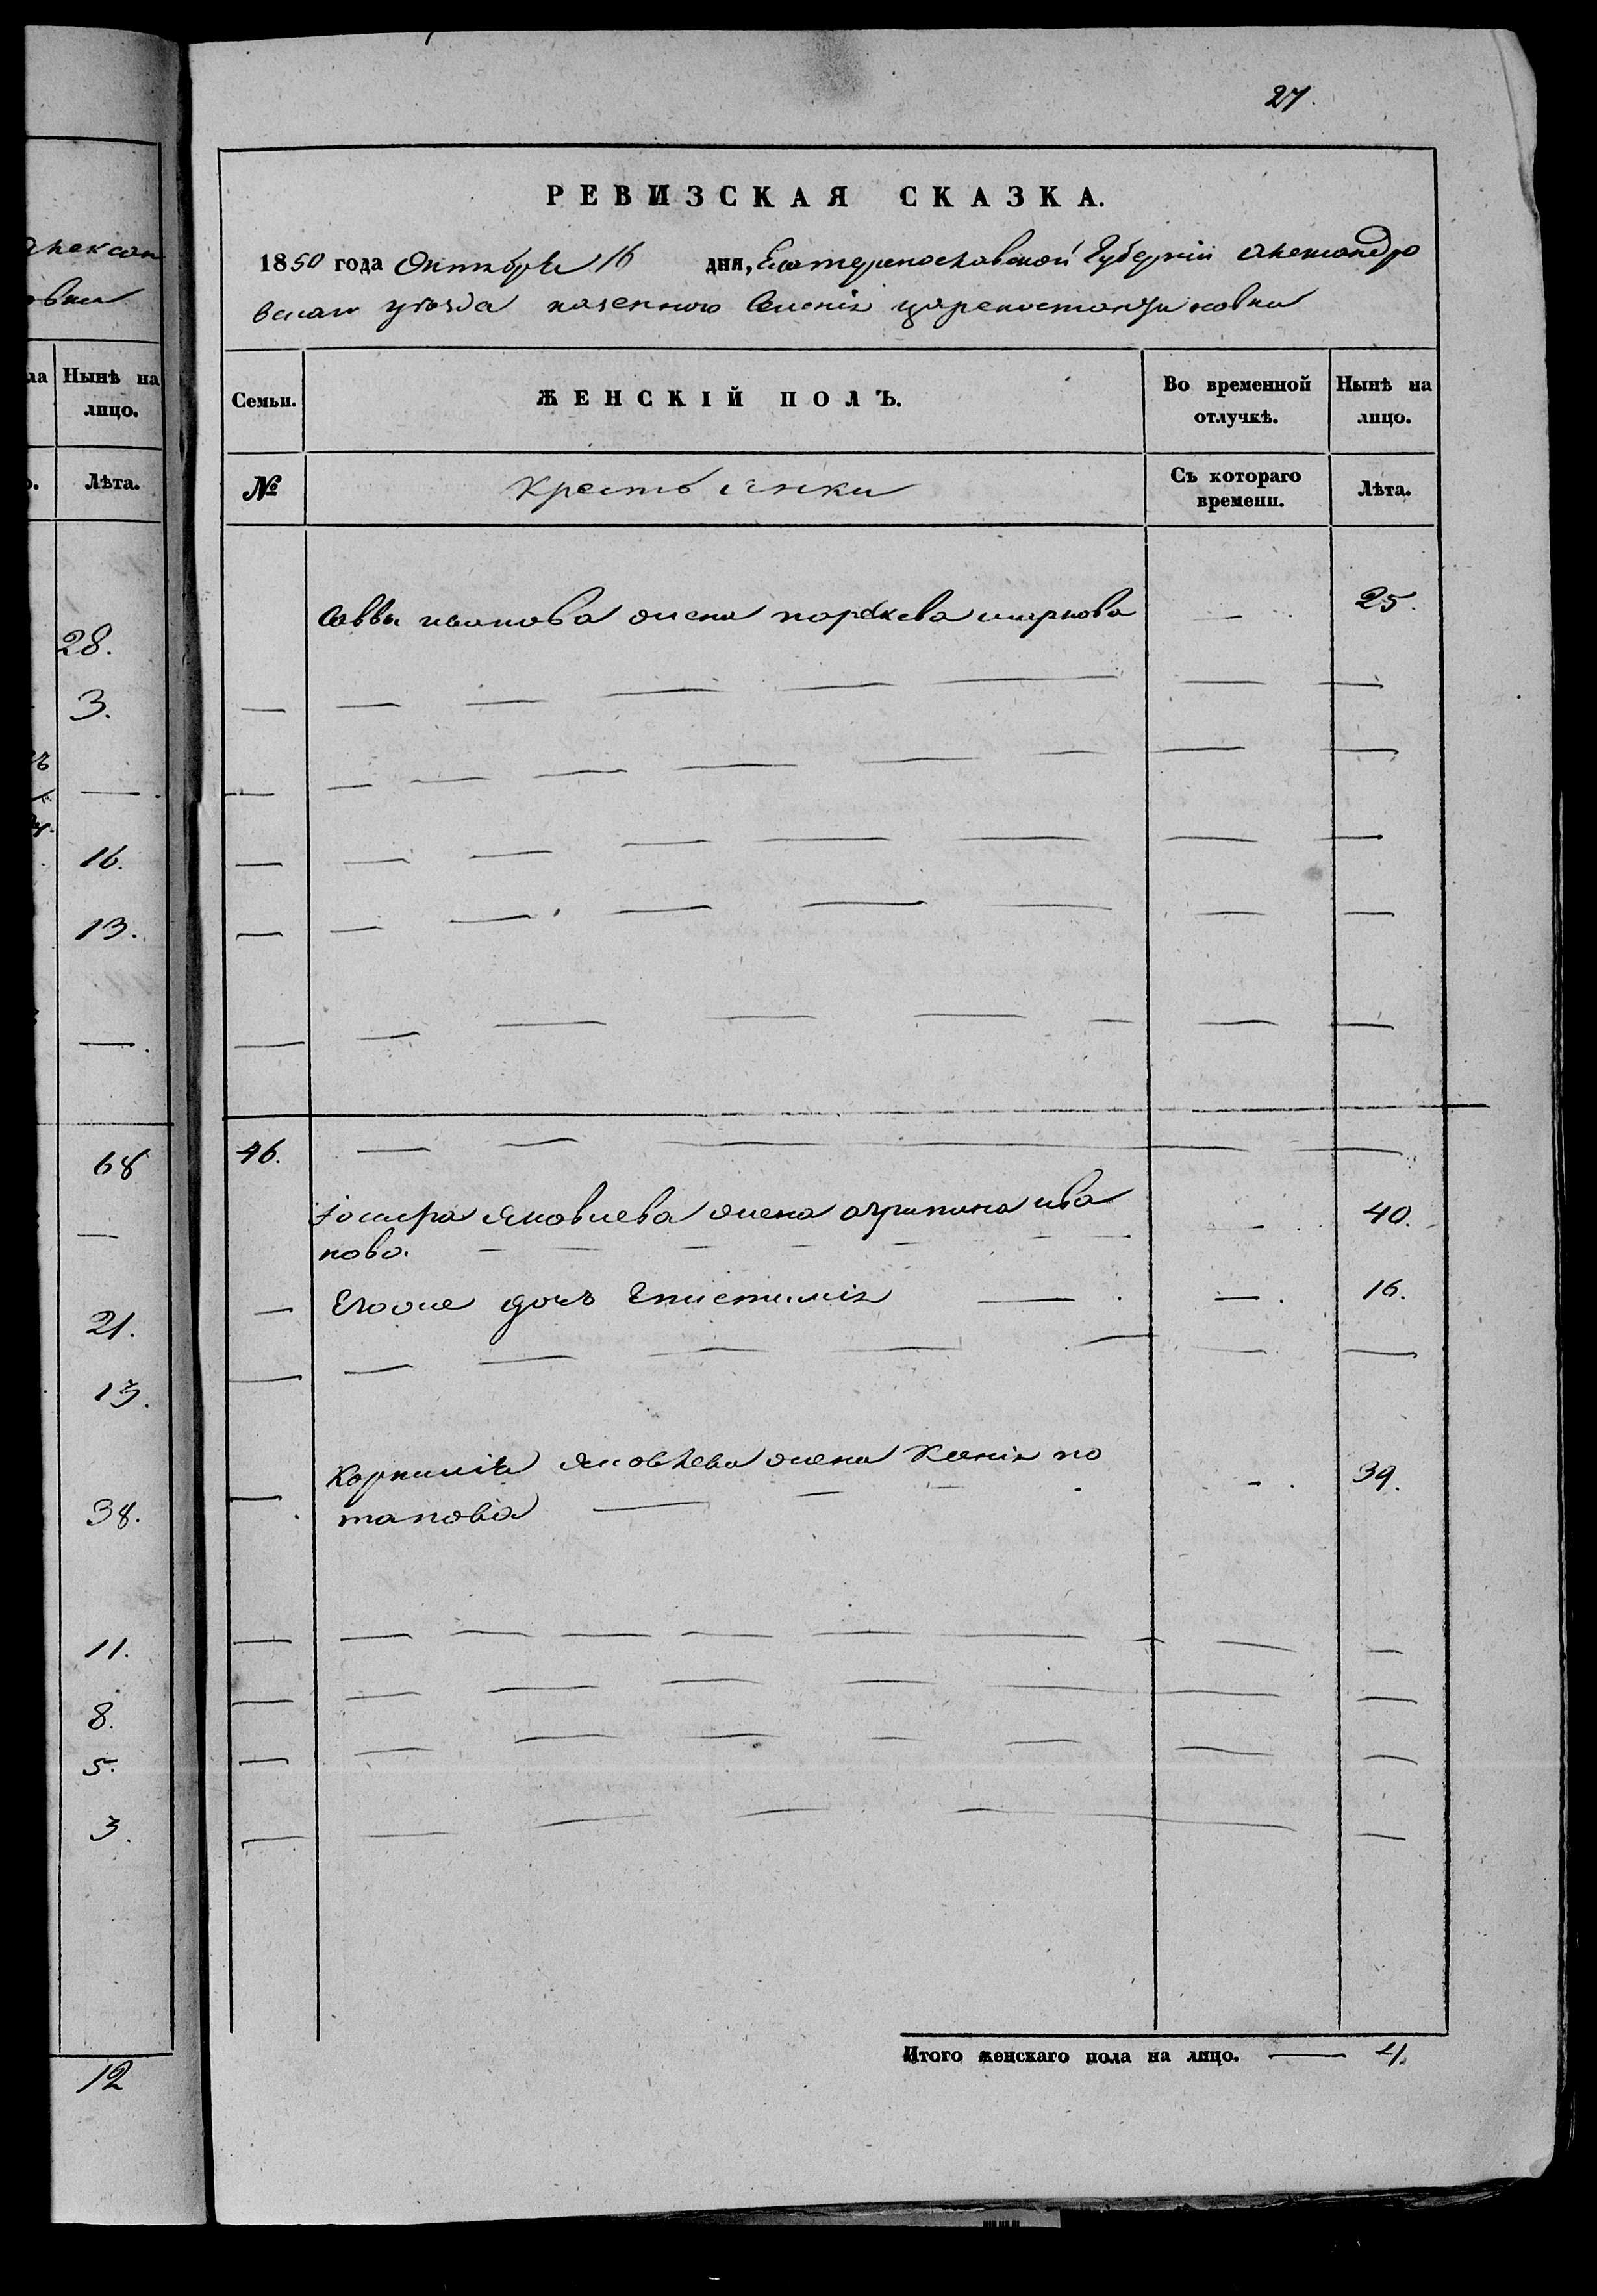 алексан
овки
ла
Нынѣ на
лицо.
Лѣта.
28.
3.
16.
13.
68
21.
13.
38.
11.
8.
5.
3.
12
27.
РЕВИЗСКАЯ СКАЗКА.
1850 года Октября 16 дня, Екатеринославской Губерніи александро
вскаго уѣзда казенного Селенія цареконстантиновки
Семьи.
ЖЕНСКІЙ ПОЛЪ.
Во временной
отлучкѣ.
Нынѣ на
лицо.
№
Крестьянки
Съ котораго
времени.
Лѣта.
Саввы иванова жена параскева 25.
46.
яковлева жена агрипина ива 40.
нова.
Егоже дочь Епистимія 16.
Корнилія яковлева жена Ксенія по 39.
тапова
Итого женскаго пола на лицо. 4.